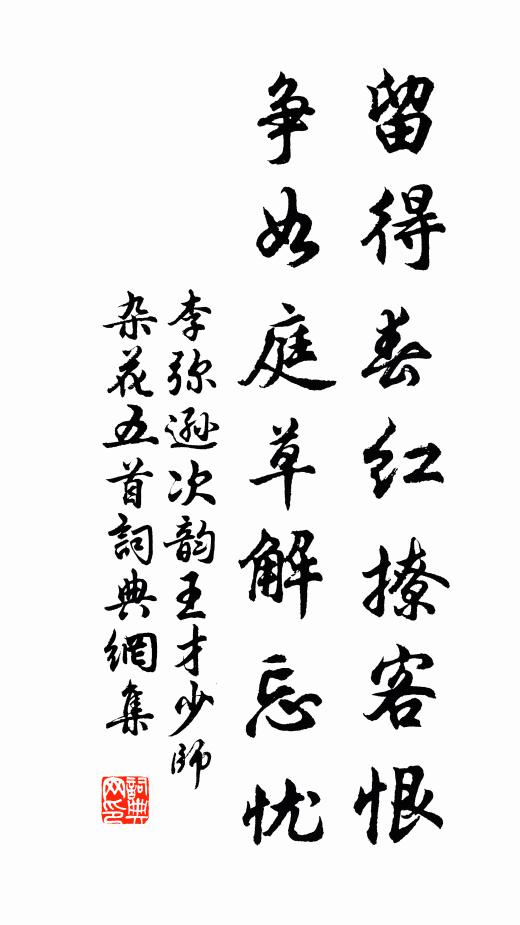 留得春红撩客恨
争如庭草解忘忧
李弥逊次韵王才少师
杂花五首詞典網集
詞典网印